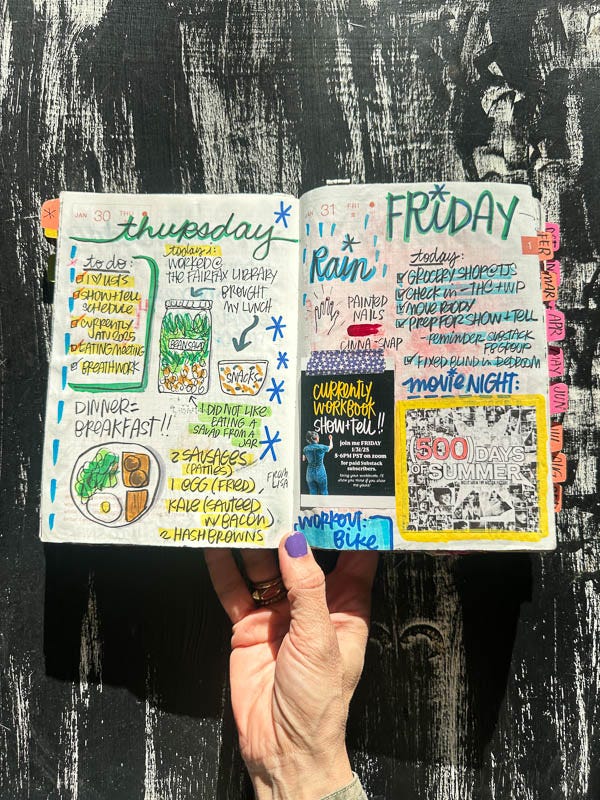 JAN 30 THU
thursday
to do:
I ♡ LISTS
SHOW+TELL
SCHEDULE
CURRENTLY
JAN 2025
EATING MEETING
BREATHWORK
today:
WORKED @
THE FAIRFAX LIBRARY
BROUGHT
MY LUNCH
BEAN SALAD
SNACKS
I DID NOT LIKE
EATING A
SALAD FROM A
JAR
DINNER =
BREAKFAST!!
2 SAUSAGES
(PATTIES)
1 EGG (FRIED),
FROM
LISA
KALE (SAUTEED
W/BACON)
2 HASHBROWNS
JAN 31 FRI
FRIDAY
Rain
PAINTED
NAILS
CINNA-SNAP
today:
GROCERY SHOP@TJS
CHECK IN - THC+WP
MOVE BODY
PREP FOR SHOW+TELL
-reminder SUBSTACK
FB GROUP
FIXED BLIND IN BEDROOM
CURRENTLY
WORKBOOK
SHOW+TELL!!
join me FRIDAY
1/31/25
5-6PM PST on zoom
for paid Substack
subscribers.
movie NIGHT:
(500) DAYS
OF SUMMER
WORKOUT:
BIKE
1
FEB
MAR
APR
MAY
JUN